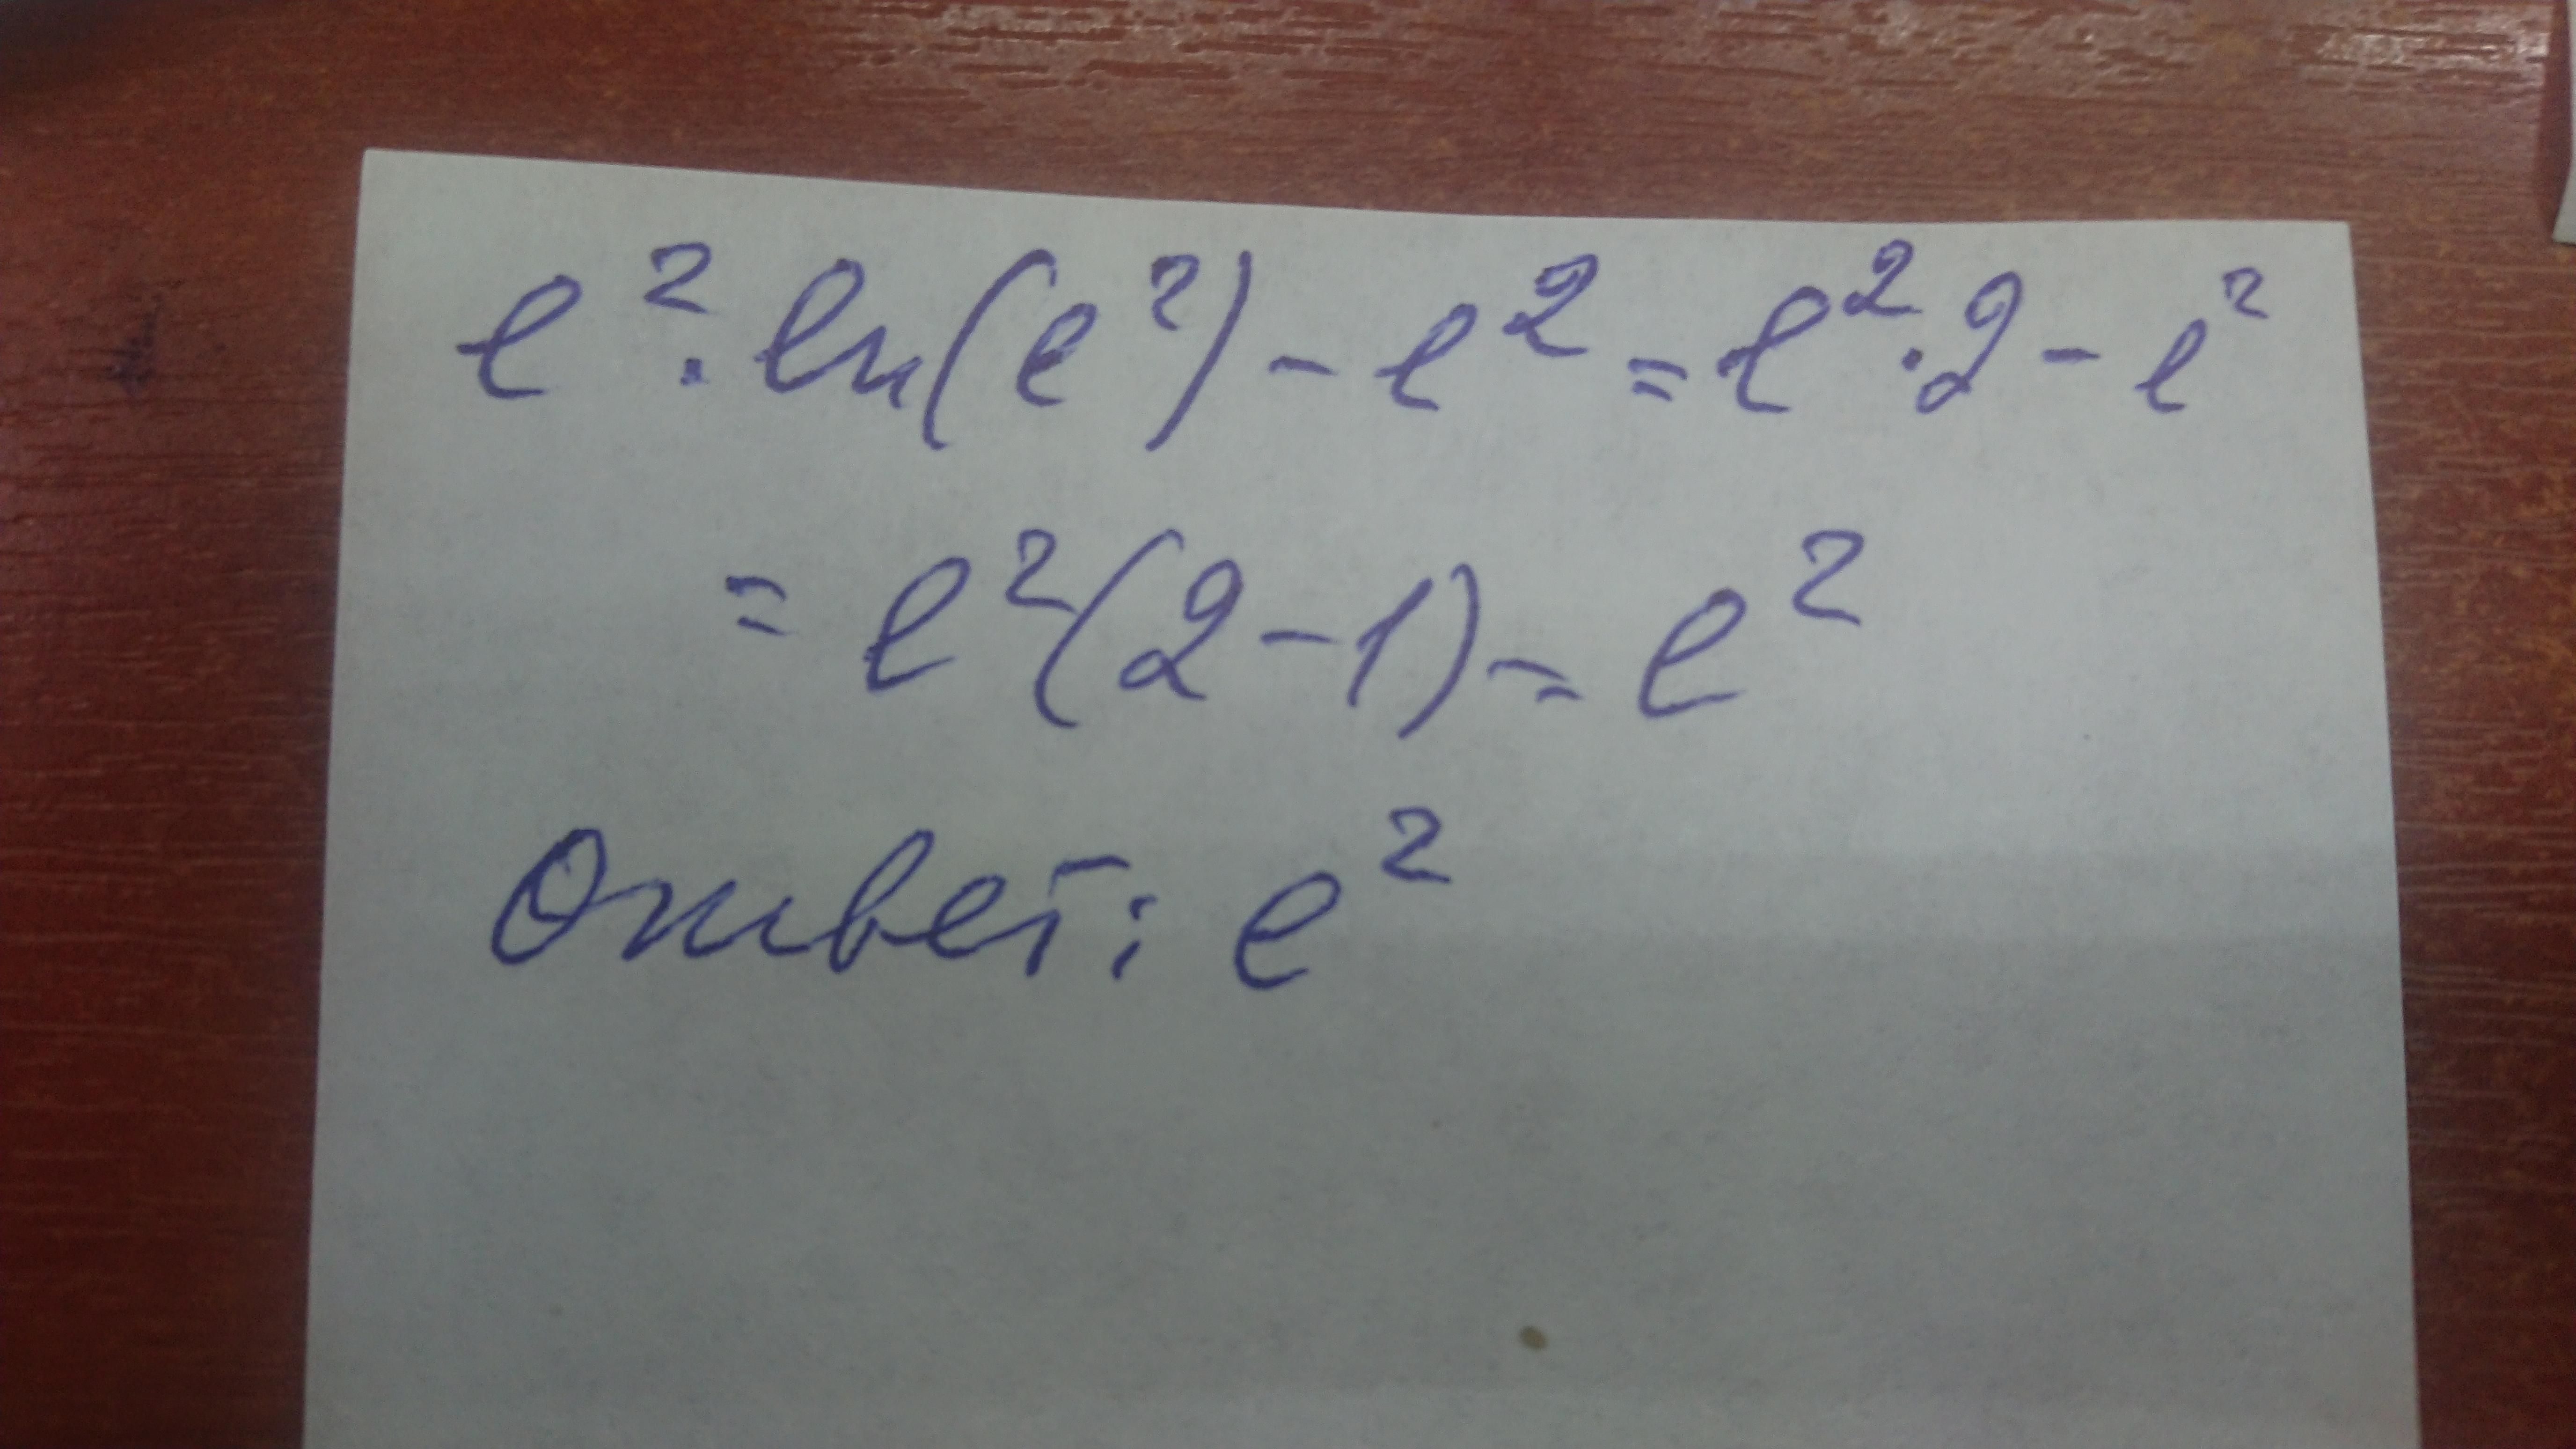 e² · ln(e²) - e² = e² · 2 - e²
= e²(2-1) = e²
Ответ: e²